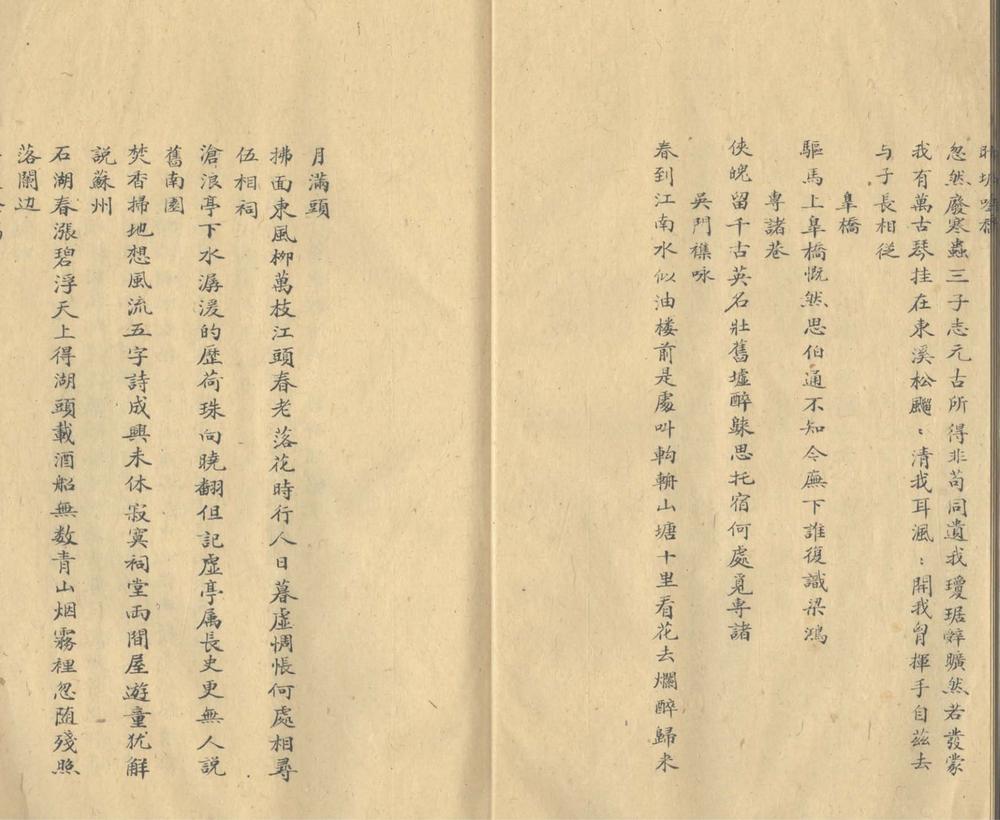 忽然廢寒蟲三子志元古所得非苟同遺我瓊琚辭曠然若發蒙
我有萬古琴挂在東溪松飈〻清我耳風〻開我胷揮手自兹去
与子長相從
臯橋
驅馬上臯橋慨然思伯通不知今廡下誰復識梁鴻
専諸巷
俠睌留千古英名壯舊墟醉䟽思托宿何處覓専諸
吳門襍咏
春到江南水似油楼前是處叫軥輈山塘十里看花去爛醉歸来
月滿頭
拂面東風柳萬枝江頭春老落花時行人日暮虛惆悵何處相尋
伍相祠
滄浪亭下水潺湲的歷荷珠向曉翻但記虛亭属長史更無人説
舊南園
焚香掃地想風流五字詩成興未休寂寞祠堂両間屋遊童犹解
説蘇州
石湖春漲碧浮天上得湖頭載酒船無数青山烟霧裡忽随殘照
落闌边